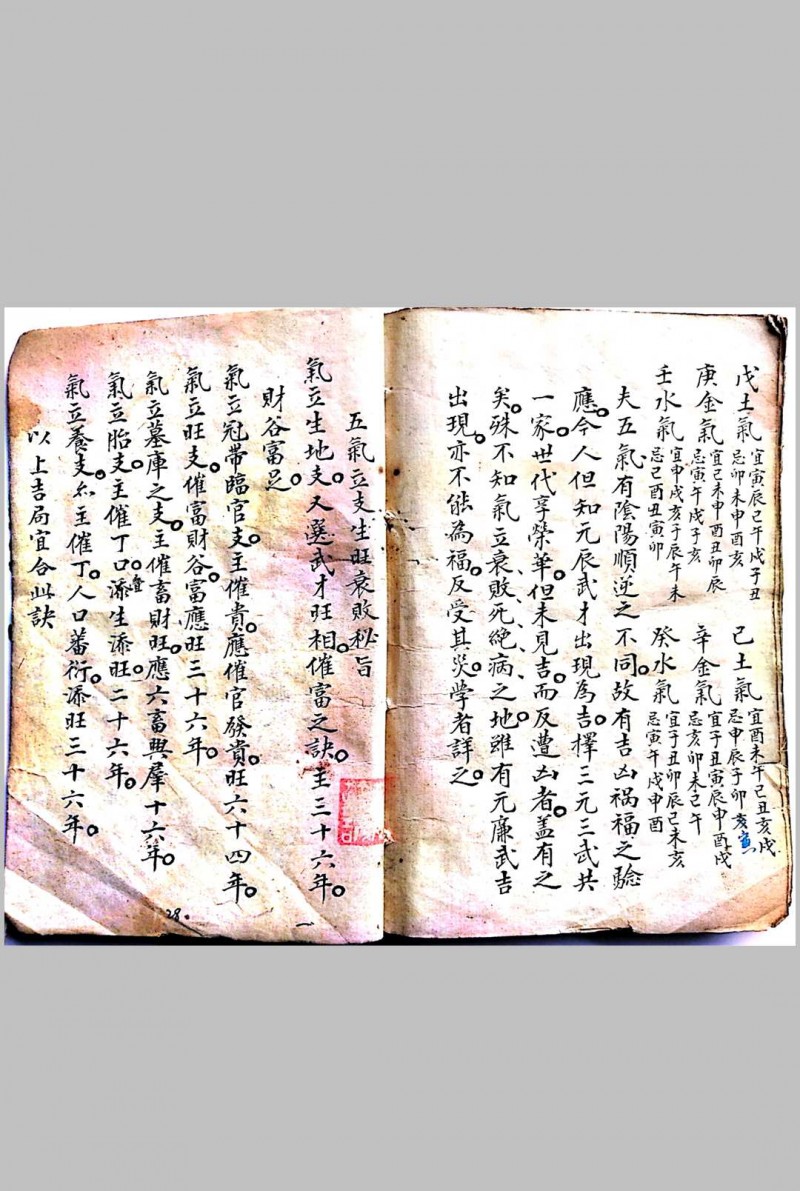 戊土氣 宜寅辰己午戌子丑 忌卯未申酉亥 己土氣 宜酉未午己丑亥戌 忌申辰子卯寅
庚金氣 宜己未申酉丑卯辰 忌寅午戌子亥 辛金氣 宜子丑寅辰申酉戌 忌亥卯未己午
壬水氣 宜申戌亥子辰午未 忌己酉丑寅卯 癸水氣 宜子丑卯辰己未亥 忌寅午戌申酉
夫五氣有陰陽順逆之不同。故有吉凶禍福之驗
應。今人但知元辰武才出現為吉。擇三元三武共
一家。世代享榮華。但未見吉。而反遭凶者。盖有之
矣。殊不知氣立衰敗死絕病之地。雖有元廉武吉
出現。亦不能為福。反受其災。學者詳之。
五氣立支生旺衰敗秘旨
氣立生地支。又選武才旺相。催富之訣。主三十六年。
財谷富足。
氣立冠帶臨官支。主催貴。應催官發貴。旺六十四年。
氣立旺支。催富財谷。富應旺三十六年。
氣立墓庫之支。主催畜財旺。應六畜興羣十六年。
氣立胎支。主催丁口。添生添旺。二十六年。
氣立養支。亦主催丁。人口蕃衍。添旺三十六年。
以上吉局宜合此訣
28.